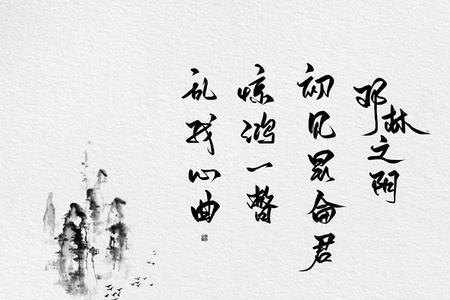 邓林之阴
初见昆仑君
惊鸿一瞥
乱我心曲